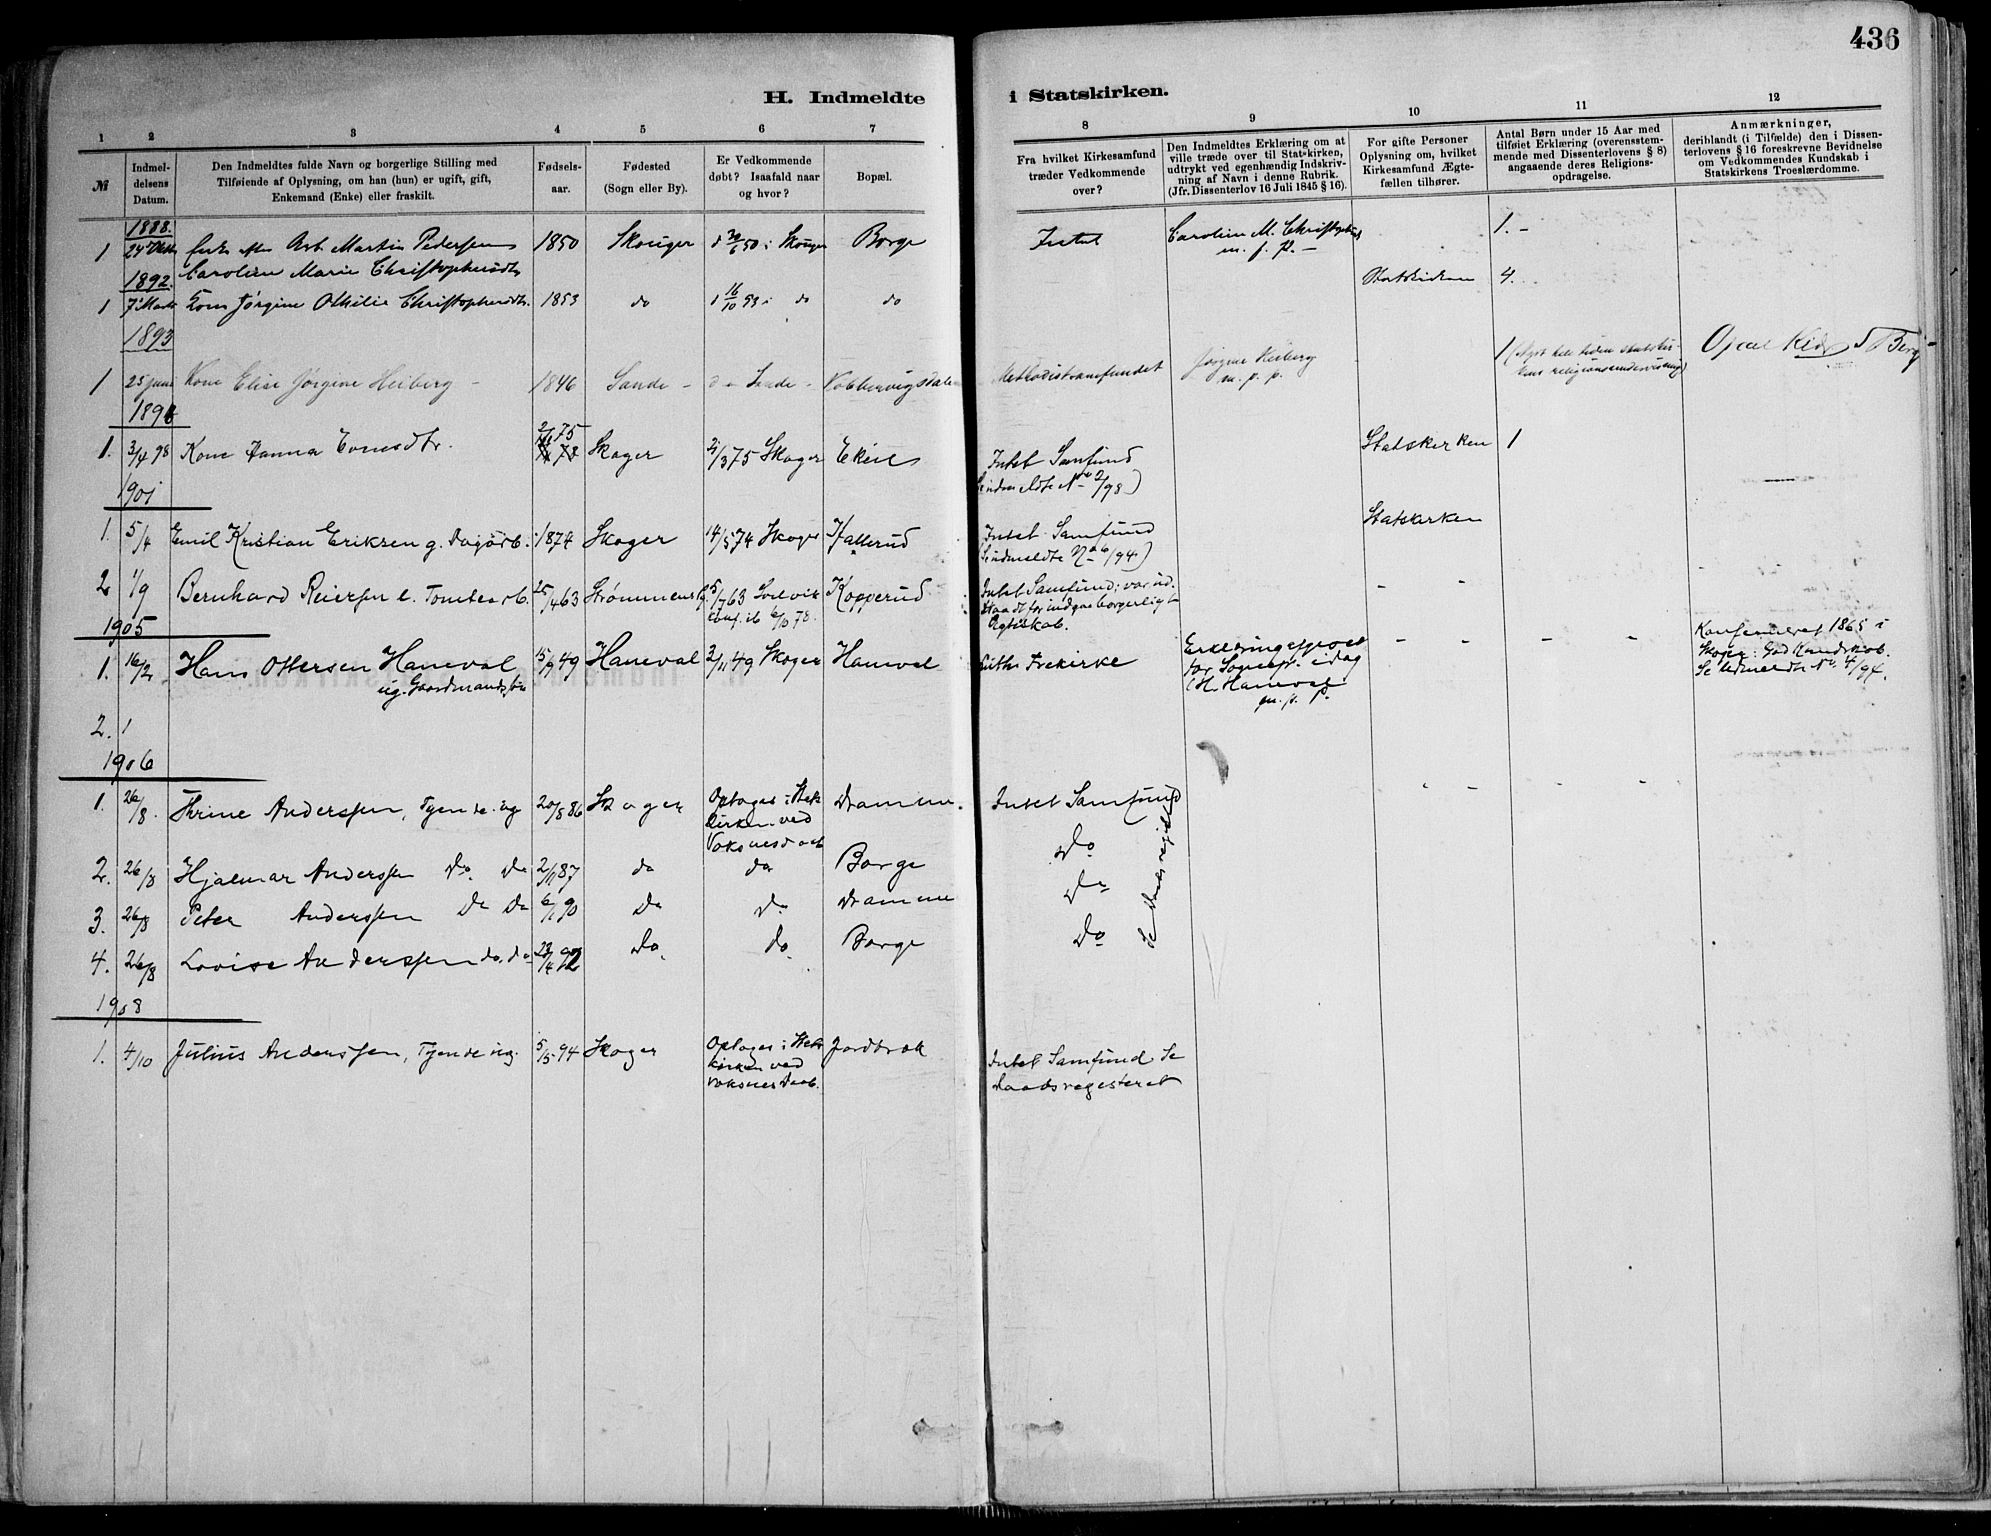 436
H. Indmeldte i Statskirken.
1 2 3 4 5 6 7 8 9 10 11 12
№
Indmel-
delsens
Datum.
Den Indmeldtes fulde Navn og borgerlige Stilling med
Tilføiende af Oplysning, om han (hun) er ugift, gift,
Enkemand (Enke) eller fraskilt.
Fødsels-
aar.
Fødested
(Sogn eller By).
Er Vedkommende
døbt? Isaafald naar
og hvor?
Bopæl.
Fra hvilket Kirkesamfund
træder Vedkommende
over?
Den Indmeldtes Erklæring om at
ville træde over til Statskirken,
udtrykt ved egenhændig Indskriv-
ning af Navn i denne Rubrik.
(Jfr. Dissenterlov 16 Juli 1845 § 16).
For gifte Personer
Oplysning om, hvilket
Kirkesamfund Ægte-
fællen tilhører.
Antal Børn under 15 Aar med
tilføiet Erklæring (overensstem-
mende med Dissenterlovens § 8)
angaaende deres Religions-
opdragelse.
Anmærkninger,
deriblandt (i Tilfælde) den i Dissen-
terlovens § 16 foreskrevne Bevidnelse
om Vedkommendes Kundskab i
Statskirkens Troeslærdomme.
1888.
1 Enke efter Arb. Martin Pedersen 1850 Skouger i Skouger Borge Intet Carolin M. Christophsd 1. -
Caroline Marie Christophersdtr m. f. P. -
1892.
1 7 Marts Kone Jørgine Othilie Christophersdtr. 1853 do 16/10 53 i do do Statskirken 4.
1893
1 25 Juni Kone Elise Jørgine Heiberg - 1846 Sande - Sande - Kobbervigsdalen Methodistsamfundet Jørgine Heiberg 1
m. p. p.
189
1. 3/4 98 Kone Hanna Evensdtr. 2/1 75 Skoger 21/3 75 Skoger Ekeie Intet Samfund Statskirken 1
(Se udmeldte No 2/98)
1901
1. 5/4 Emil Kristian Eriksen g. Dagarb. 1874 Skoger 14/5 74 Skoger Hallerud Intet Samfund Statskirken
(Se udmeldte No 6/94)
2 1/9 Bernhard Reiersen e. Tomtearb. 25/4 63 Strømmen 5/7 63 Svelvik Kopperud Intet Samfund; var ud-
conf. ib 6/10 78. traadt for indgaa borgerligt
Egteskab.
1905
1. 16/2 Hans Ottersen Haneval 15/9 49 Haneval 2/11 49 Skoger Haneval Luth. Frekirke Erklæring afgivet - - - - Konfirmeret 1865 i
ug. Gaardmandssøn for Sognepr. idag Skoger. God Kundskab.
(H. Haneval Se Udmeldte No. 4/94.
m. p. p.
2. 1
1906
1. 26/8. Thrine Anderssen, Tjende. ug 20/5 86 Skoger Optages i Stats Drammen. Intet Samfund
kirken ved
Voksnesdaab
2. 26/8 Hjalmar Anderssen Do. Do 2/11 87 do do Borge Do
3. 26/8 Peter Anderssen Do Do 6/1 90 Do Do Drammen Do
4. 26/8 Lovise Anderssen do. do 23/4 92 Do. do. Borge Do
1908
1. 4/10 Julius Anderssen, Tjende ug. 5/5 94 Skoger Optages i Stats Jordbræk Intet Samfund Se
kirken ved daabsregisteret
voksnes Daab.